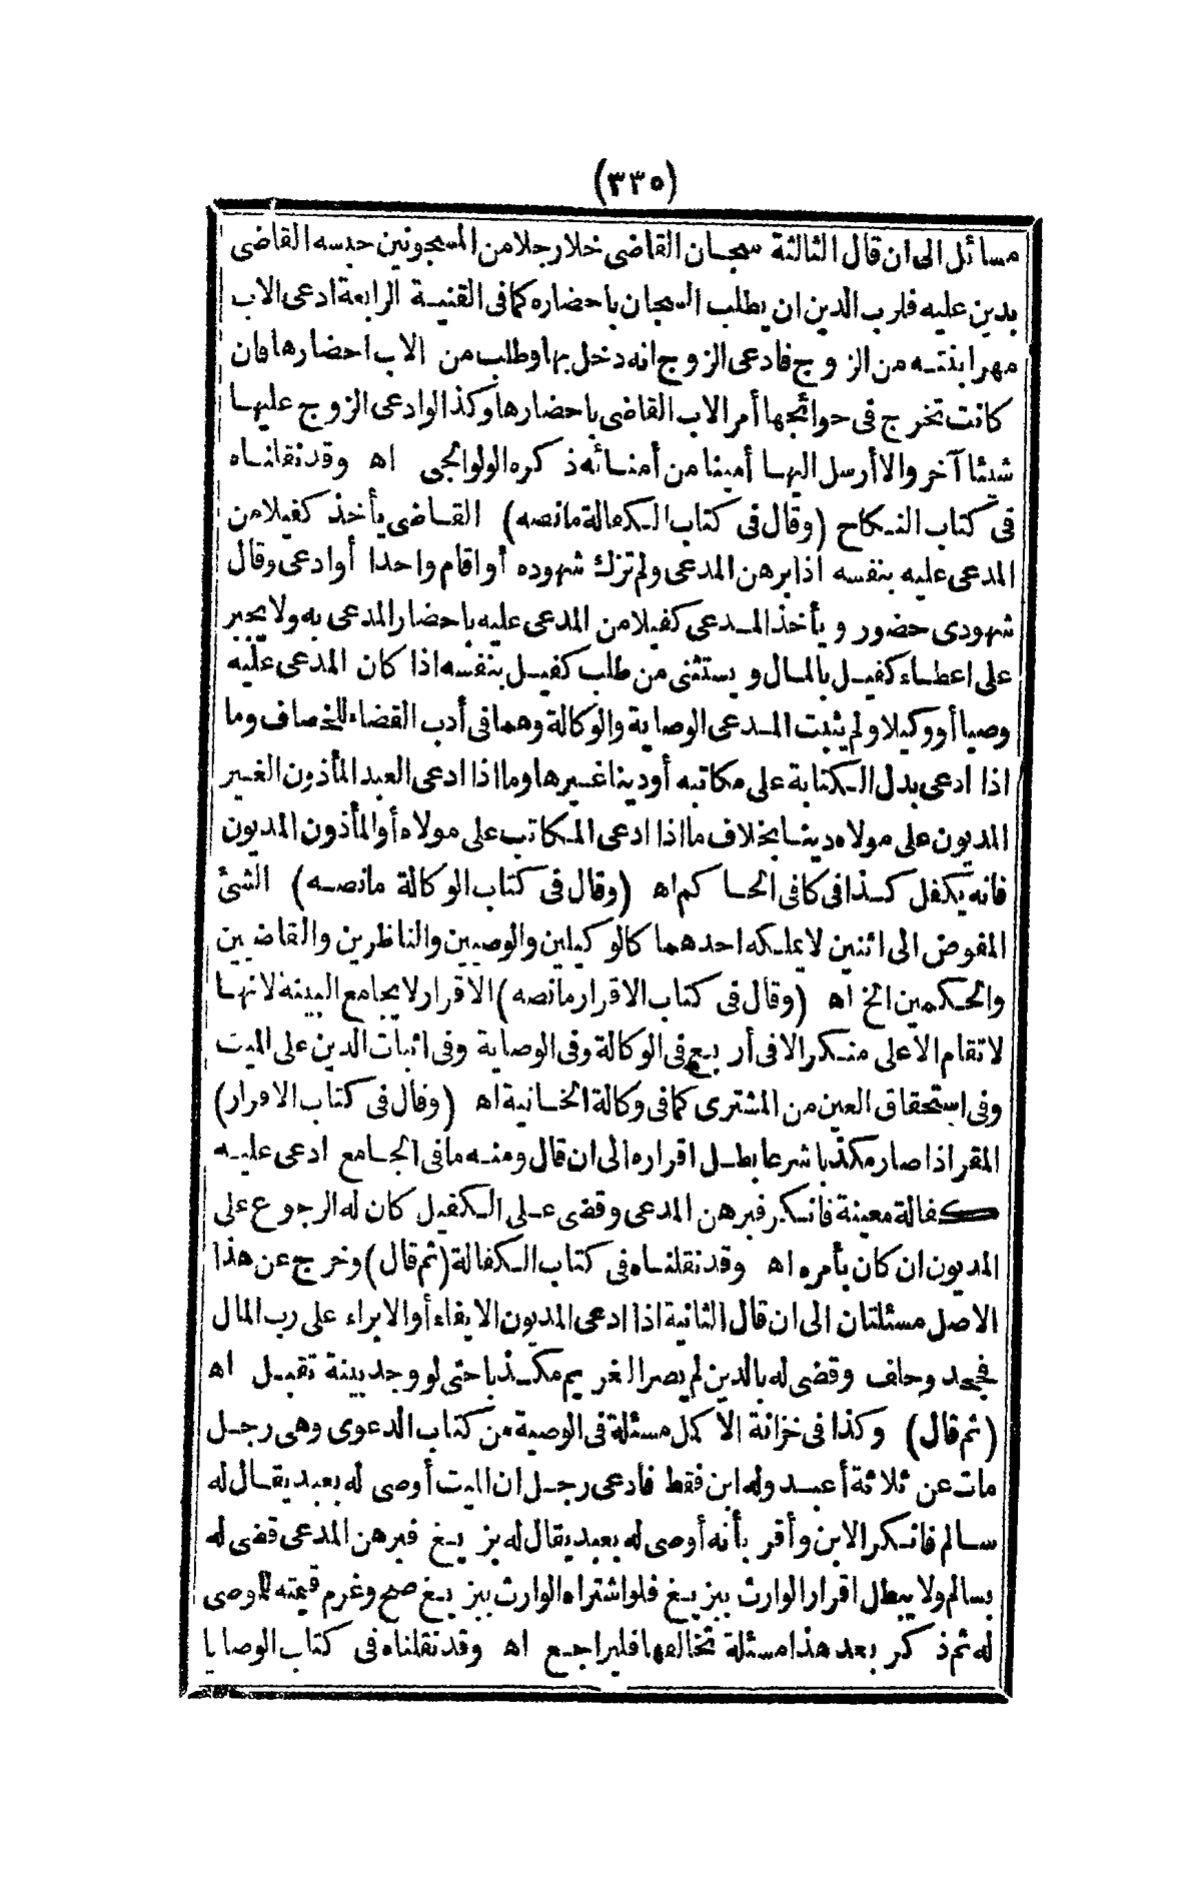 (٣٣٥)
مسائل الى ان قال الثالثة سجان القاضى خلا رجلا من المسجونين حبسه القاضى
بدين عليه فلرب الدين ان يطلب السجان باحضاره كما فى القنية الرابعة ادعى الاب
مهر ابنته من الزوج فادعى الزوج انه دخل بها وطلب من الاب احضارها فان
كانت تخرج فى حوائجها أمر الاب القاضى باحضارها وكذا لو ادعى الزوج عليها
شيئا آخر والا أرسل اليها أمينا من أمنائه ذكره الولوالجى اه وقد نقلناه
فى كتاب النكاح (وقال فى كتاب الكفالة مانصه) القاضى يأخذ كفيلا من
المدعى عليه بنفسه اذا برهن المدعى ولم تزك شهوده أو اقام واحدا أو ادعى وقال
شهودى حضور و يأخذ المدعى كفيلا من المدعى عليه باحضار المدعى به ولا يجبر
على اعطاء كفيل بالمال و يستثنى من طلب كفيل بنفسه اذا كان المدعى عليه
وصيا أو وكيلا ولم يثبت المدعى الوصاية والوكالة وهما فى أدب القضاء للخصاف وما
اذا ادعى بدل الكتابة على مكاتبه أو دينا غيرها وما اذا ادعى العبد المأذون الغير
المديون على مولاه دينا بخلاف ما اذا ادعى المكاتب على مولاه أو المأذون المديون
فانه يكفل كذا فى كافى الحاكم اه (وقال فى كتاب الوكالة مانصه) الشئ
المفوض الى اثنين لا يملكه احدهما كالوكيلين والوصيين والناظرين والقاضيين
والحكمين الخ اه (وقال فى كتاب الاقرار مانصه) الاقرار لا يجامع البينة لانها
لا تقام الا على منكر الا فى أربع فى الوكالة وفى الوصاية وفى اثبات الدين على الميت
وفى استحقاق العين من المشترى كما فى وكالة الخانية اه (وقال فى كتاب الاقرار)
المقر اذا صار مكذبا شرعا بطل اقراره الى ان قال ومنه ما فى الجامع ادعى عليه
كفالة معينة فانكر فبرهن المدعى وقضى على الكفيل كان له الرجوع على
المديون ان كان بأمره اه وقد نقلناه فى كتاب الكفالة (ثم قال) وخرج عن هذا
الاصل مسئلتان الى ان قال الثانية اذا ادعى المديون الايفاء أو الابراء على رب المال
فجحد وحلف وقضى له بالدين لم يصر الغريم مكذبا حتى لو وجد بينة تقبل اه
(ثم قال) وكذا فى خزانة الاكمل مسئلة فى الوصية من كتاب الدعوى وهى رجل
مات عن ثلاثة أعبد وله ابن فقط فادعى رجل ان الميت أوصى له بعبد يقال له
سالم فانكر الابن وأقر بأنه أوصى له بعبد يقال له بزيغ فبرهن المدعى قضى له
بسالم ولا يبطل اقرار الوارث ببزيغ فلو اشتراه الوارث ببزيغ صح وغرم قيمته للموصى
له ثم ذكر بعد هذا مسئلة تخالفها فليراجع اه وقد نقلناه فى كتاب الوصايا